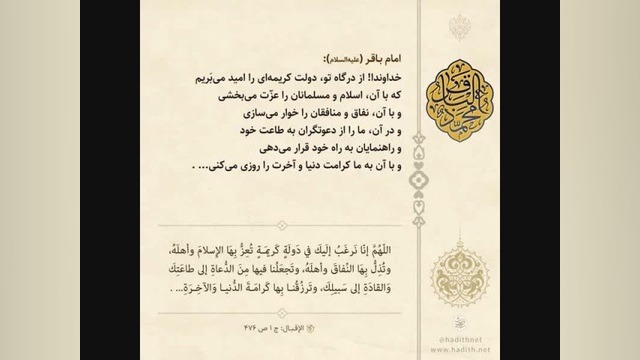 امام باقر (علیه‌السلام):
خداوندا! از درگاه تو، دولت کریمه‌ای را امید می‌بَریم
که با آن، اسلام و مسلمانان را عزّت می‌بخشی
و با آن، نفاق و منافقان را خوار می‌سازی
و در آن، ما را از دعوتگران به طاعت خود
و راهنمایان به راه خود قرار می‌دهی
و با آن به ما کرامت دنیا و آخرت را روزی می‌کنی... .
اللّهُمَّ إنّا نَرغَبُ إلَیكَ في دَولَةٍ كَريمَةٍ تُعِزُّ بِهَا الإِسلامَ وأهلَهُ،
وتُذِلُّ بِهَا النِّفاقَ وأهلَهُ، وتَجعَلُنا فيها مِنَ الدُّعاةِ إلى طاعَتِكَ
وَالقادَةِ إلى سَبيلِكَ، وتَرزُقُنا بِها كَرامَةَ الدُّنيا وَالآخِرَةِ... .
الإقبال: ج ۱ ص ۴۷۶
محمد الباقر
@hadithnet
www.hadith.net